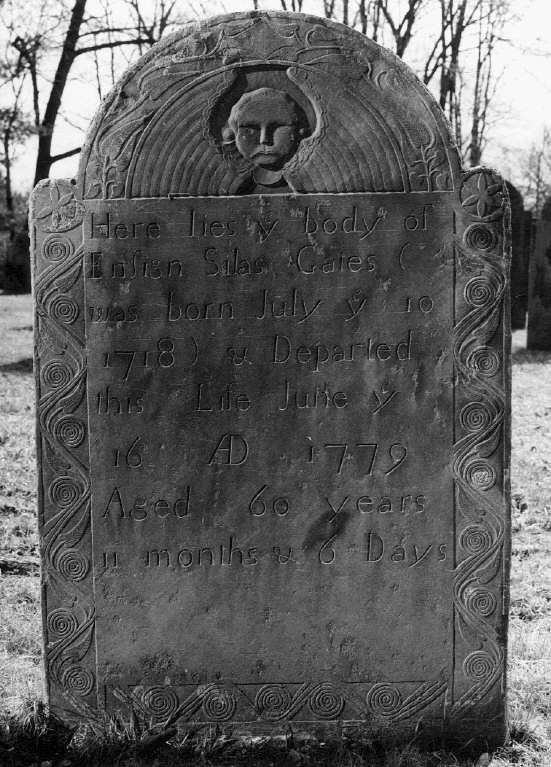 Here lies ẙ body of
Ensign Silas Gates (
was born July ẙ 10
1718) & Departed
this Life June ẙ
16 AD 1779
Aged 60 years
11 months & 6 Days